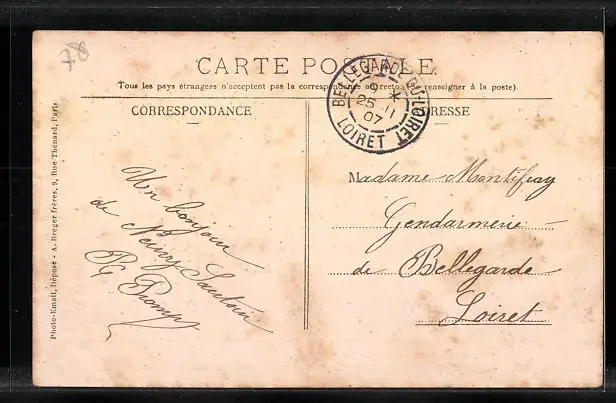 78
CARTE POSTALE
Tous les pays étrangers n'acceptent pas la correspondance au recto (se renseigner à la poste).
BELLEGARDE-DU-LOIRET
9 *
25 - 11
07
LOIRET
CORRESPONDANCE
ADRESSE
Un bonjour
de Neuvy Sautour
P G
Madame Montifray
Gendarmerie
de Bellegarde
Loiret
Photo-Email, Déposé - A. Breger frères, 9, Rue Thénard, Paris